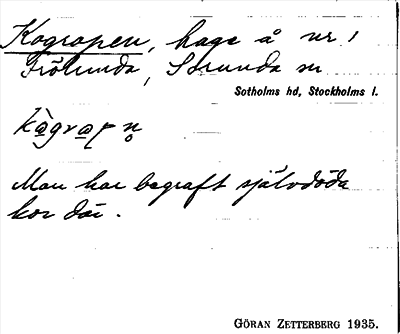 Kogropen, hage å nr 1
Frölunda, Sorunda sn
Sotholms hd, Stockholms l.
kògrop n̥
Man har begraft självdöda
kor där.
GÖRAN ZETTERBERG 1935.